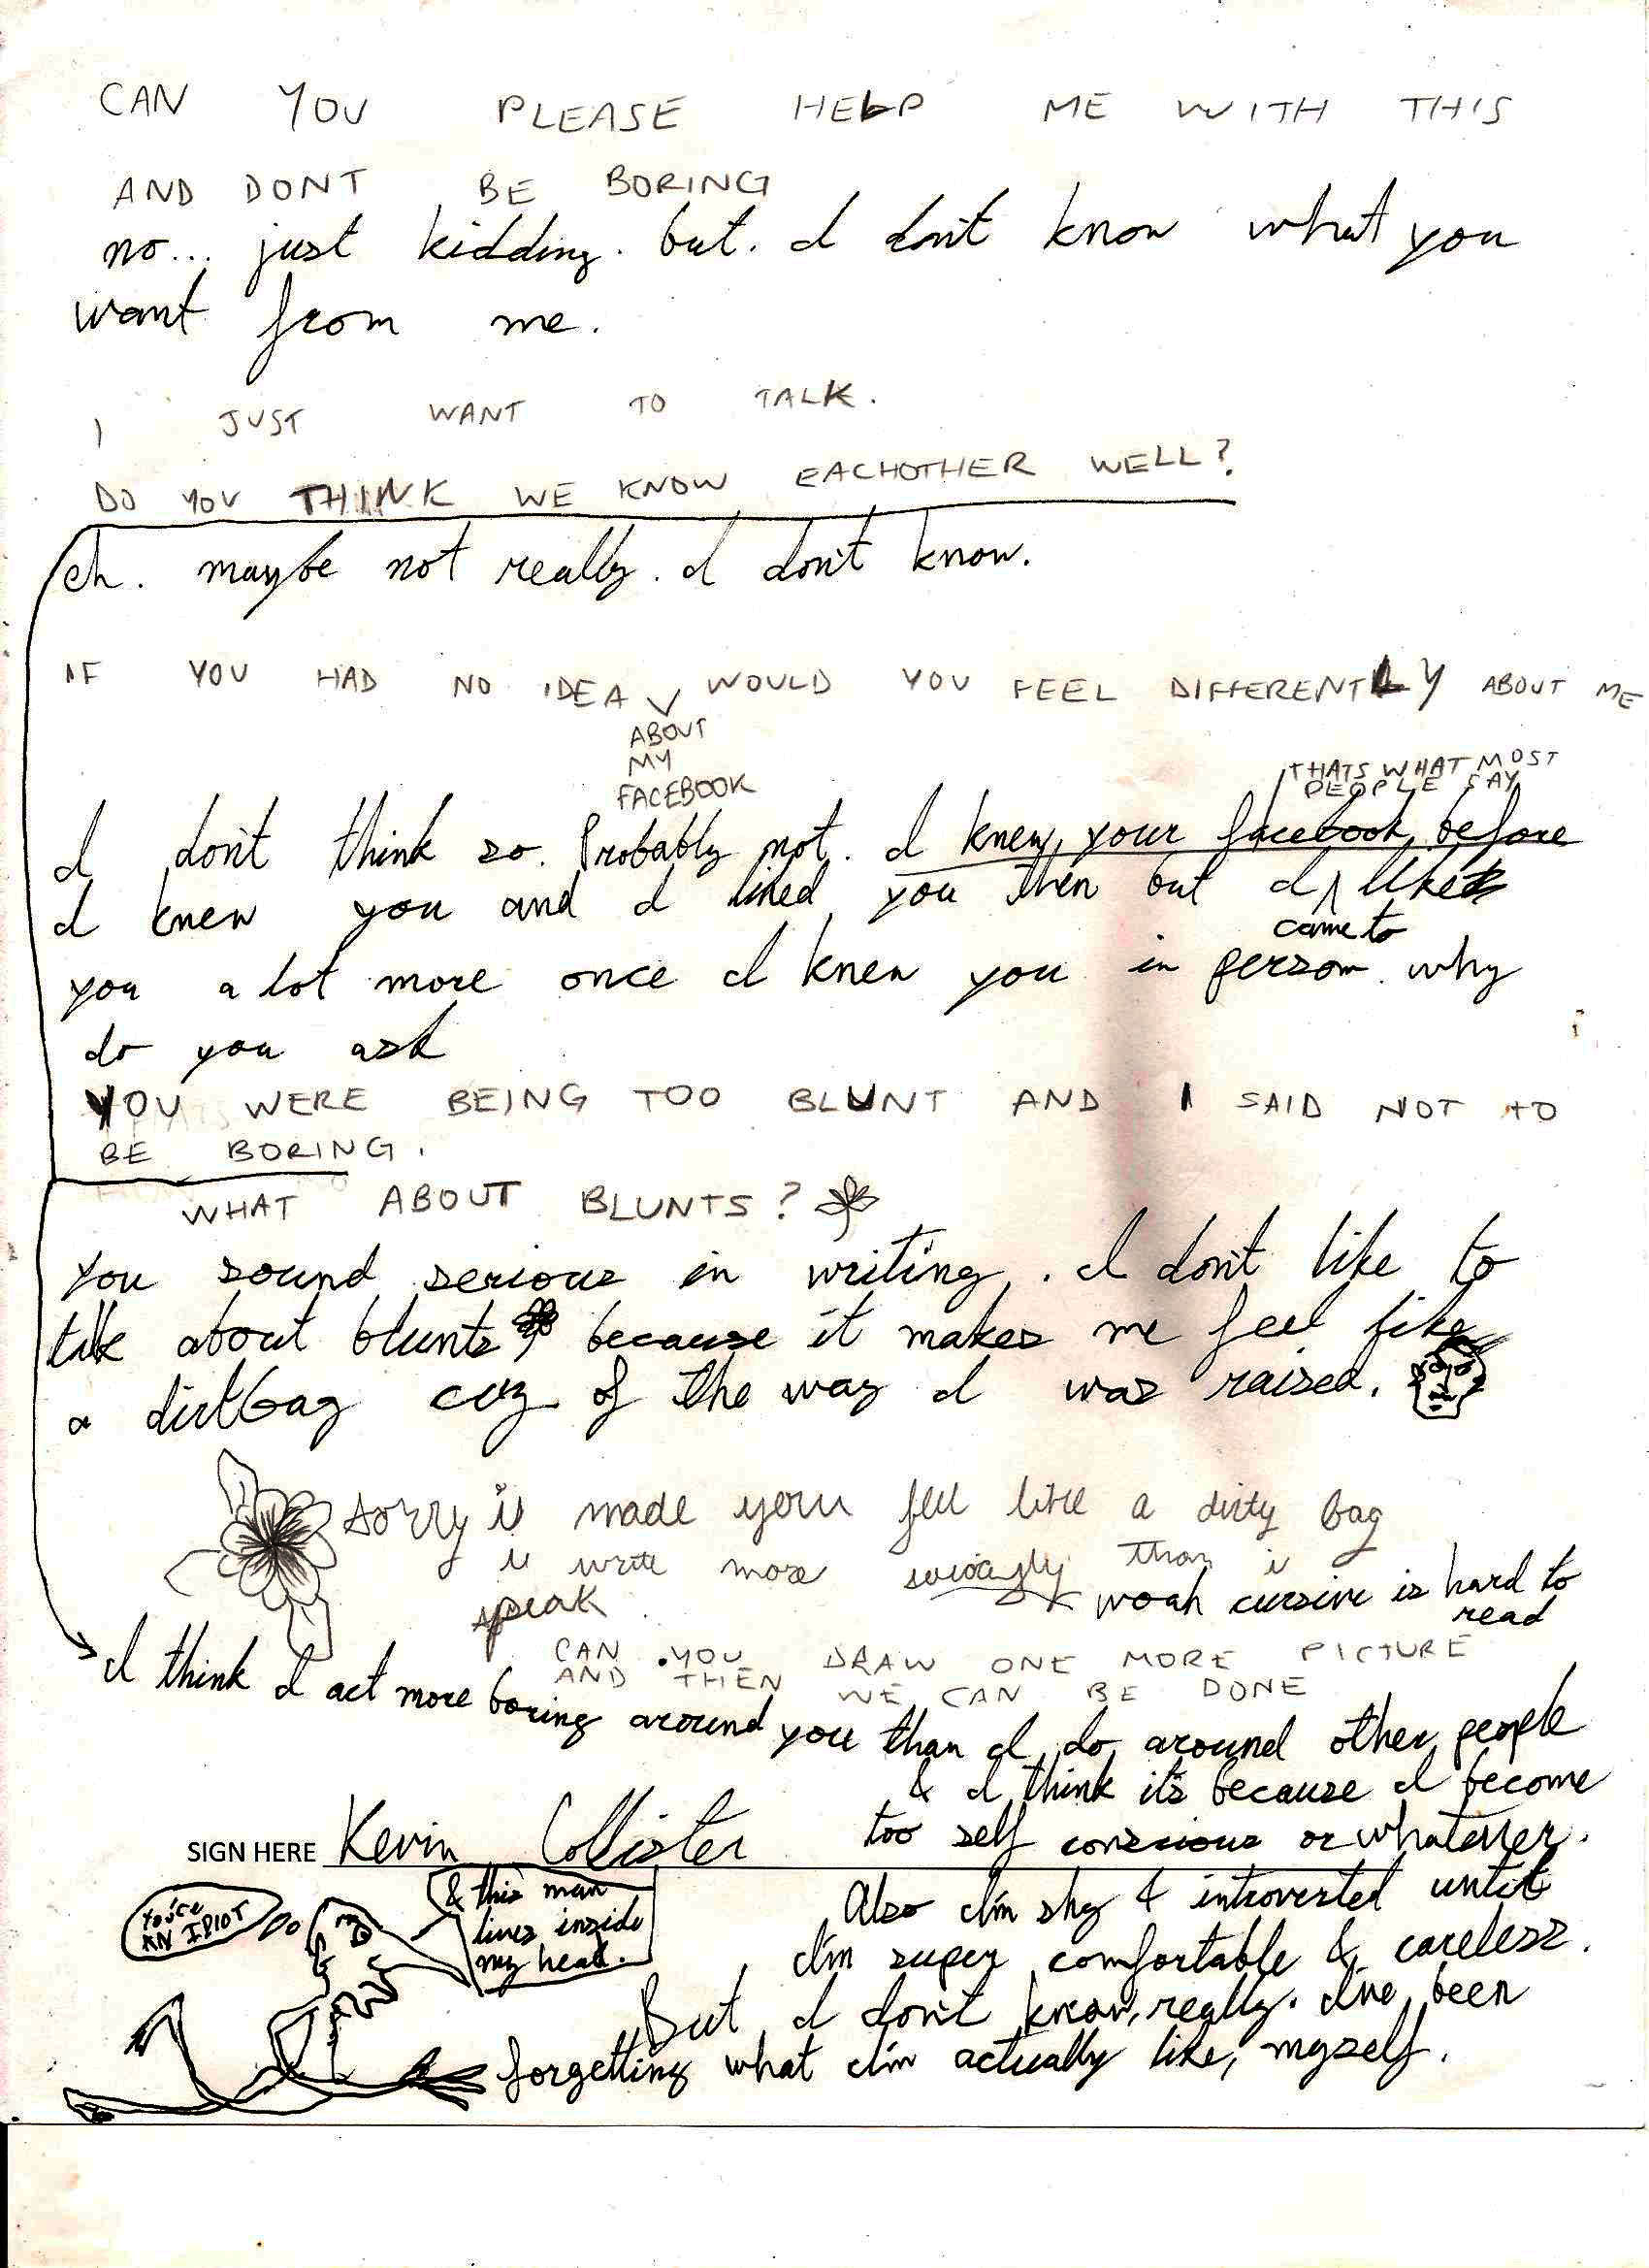 CAN YOU PLEASE HELP ME WITH THIS
AND DONT BE BORING
no... just kidding. but. I don't know what you
want from me.
I JUST WANT TO TALK.
DO YOU THINK WE KNOW EACHOTHER WELL?
eh. maybe not really. I don't know.
IF YOU HAD NO IDEA WOULD YOU FEEL DIFFERENTLY ABOUT ME
ABOUT
MY
FACEBOOK
THATS WHAT MOST
PEOPLE SAY
I don't think so. Probably not. I knew your facebook before
I knew you and I liked you then but I like
came to
you a lot more once I knew you in person. why
do you ask
YOU WERE BEING TOO BLUNT AND I SAID NOT TO
BE BORING.
WHAT ABOUT BLUNTS?
You sound serious in writing. I don't like to
talk about blunts because it makes me feel like
a dirtbag cuz of the way I was raised.
Sorry i made you feel like a dirty bag
i write more seriously than i
speak
woah cursive is hard to
read
CAN YOU DRAW ONE MORE PICTURE
AND THEN WE CAN BE DONE
I think I act more boring around you than I do around other people
& I think it's because I become
too self conscious or whatever.
SIGN HERE Kevin Collister
Also I'm shy & introverted until
I'm super comfortable & careless.
But I don't know, really. I've been
forgetting what I'm actually like, myself.
you're
AN IDIOT
& this man
lives inside
my head.